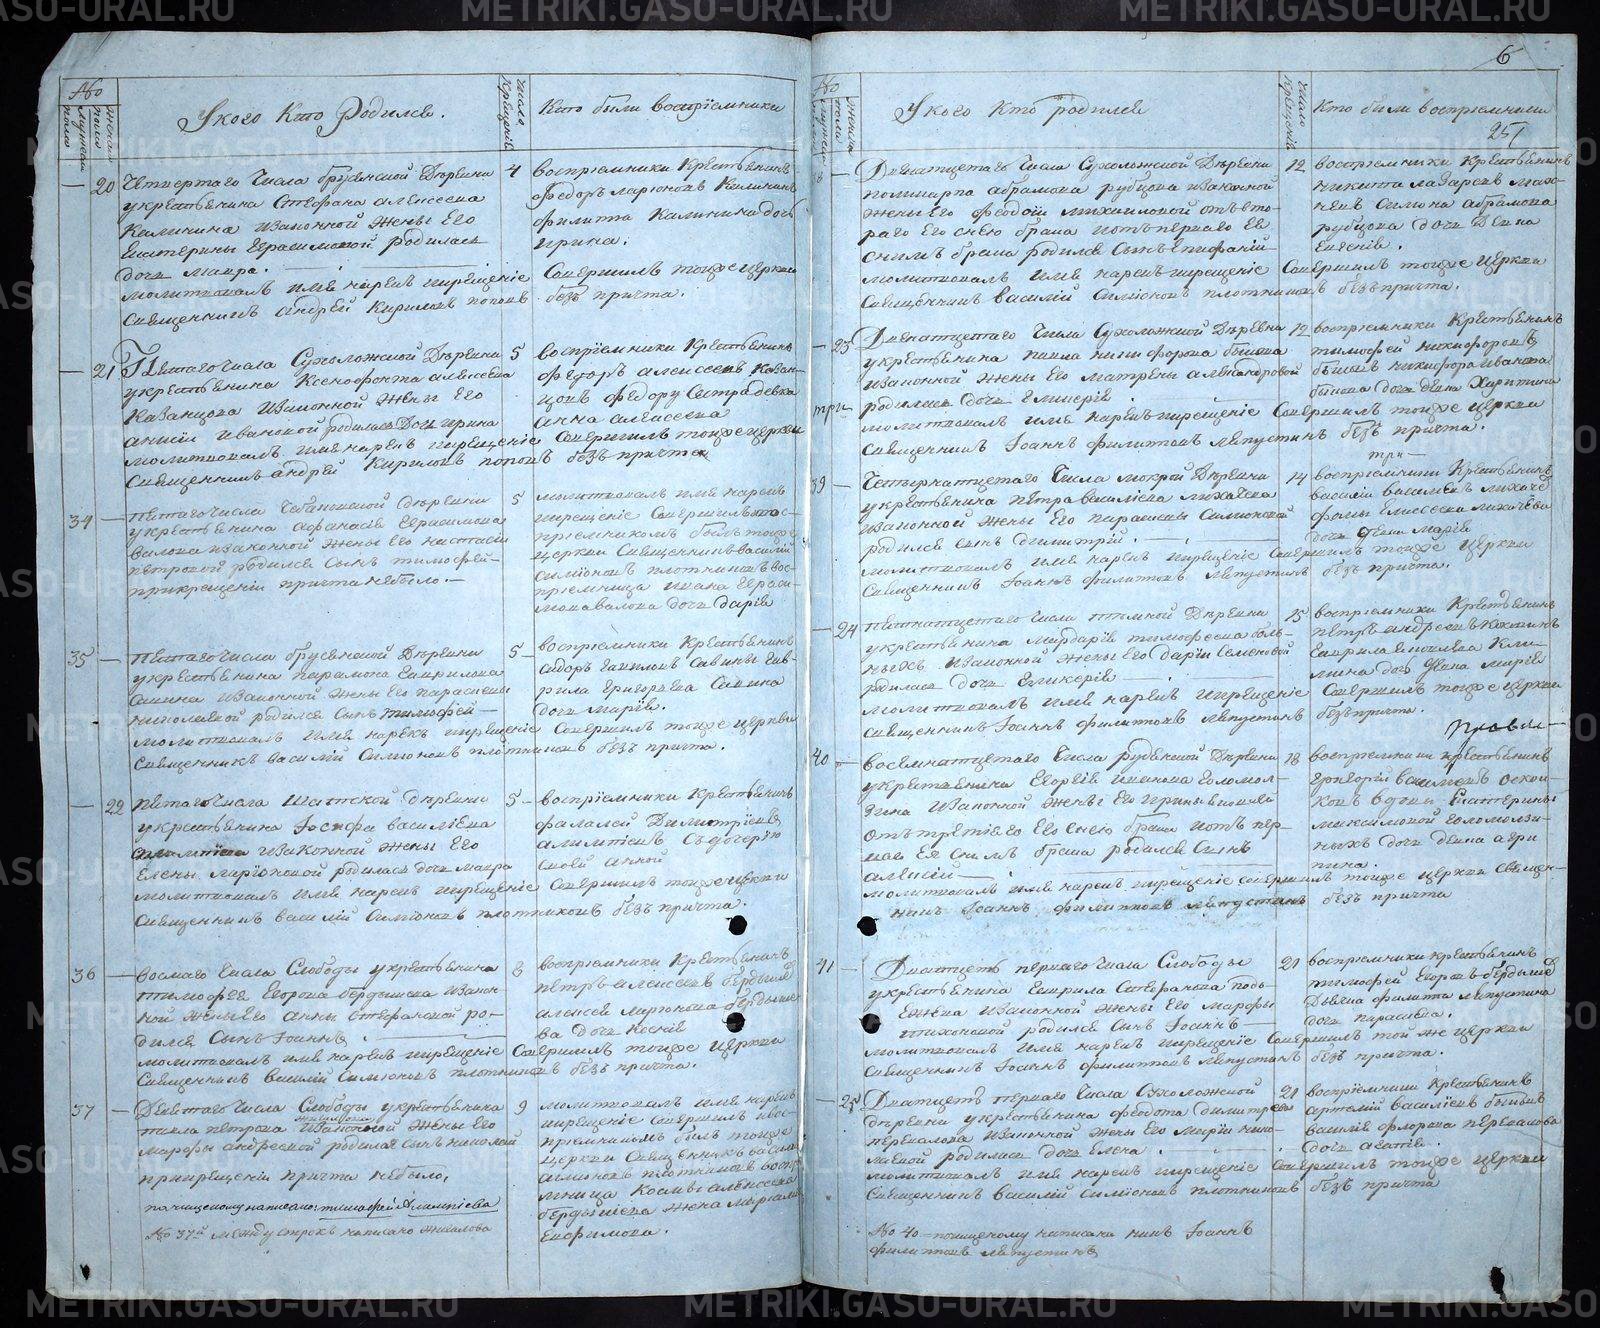 METRIKI.GASO-URAL.RU
6
№
мужеска
полу
женска
полу
У кого Кто Родился.
число
крещенія
Кто были воспріемники
20
Четвертаго Числа брусянской Дѣревни
у крестьянина Стефана алексеева
Калинина и Законной Жены Его
Екатерины Герасимовой родилась
дочь мавра.
молитвовалъ имя нарекъ и крещеніе
священникъ андрей Кириловъ поповъ
4
воспріемники Крестьянинъ
Федоръ ларионовъ Калининъ
филипа Калинина дочь
ирина.
Совершилъ тояже церкви
безъ причта.
21
Пятаго Числа Сухоложской Дѣревни
у крестьянина Ксенофонта алексеева
Казанцова и Законной Жены Его
анисіи ивановой родилась Дочь ирина
молитвовалъ имя нарекъ и крещеніе
Священникъ андрей Кириловъ поповъ
5
воспріемники Крестьянинъ
Федоръ алексеевъ Казан-
цовъ федору Сестра девка
анна алексеева
Совершилъ тояже церкви
безъ причта
34
пятаго числа
дѣревни
у крестьянина афанасія Герасимова
валова и законной жены его настасіи
петровой родился Сынъ тимофей-
при крещеніи причта небыло.
5
молитвовалъ имя нарекъ
и крещеніе Совершилъ и вос-
пріемникомъ былъ тояже
церкви Священникъ василій
симіоновъ плотниковъ вос-
пріемница ивана Гераси-
мова валова дочь дарія
35
пятаго числа брусянской Дѣревни
у крестьянина парамона Гаврилова
Савина и Законной Жены Его парасковьи
николаевой родился Сынъ тимофей
молитвовалъ имя нарекъ и крещеніе
Священникъ василій Симіоновъ плотниковъ
5
воспріемники Крестьянинъ
сидоръ гавриловъ Савинъ гав-
рила григорьева Савина
дочь марія.
Совершилъ тояже церкви
безъ причта.
22
пятаго числа Шатской дѣревни
у крестьянина Іосифа василіева
и Законной жены Его
Елены ларіоновой родилась дочь мавра
молитвовалъ имя нарекъ и крещеніе
Священникъ василій Симіоновъ плотниковъ
5
воспріемники Крестьянинъ
фалалей Димитріевъ
алимпіевъ Съ дочерію
своей анной
Совершилъ тояже церкви
безъ причта.
36
восмаго числа Слободы у крестьянина
тимофея Егорова бердышева и Закон-
ной Жены Его анны Стефановой ро-
дился Сынъ Іоаннъ
молитвовалъ имя нарекъ и крещеніе
Священникъ василій Симіоновъ плотниковъ
8
воспріемники Крестьянинъ
петръ алексеевъ бердышевъ
алексея ларионова бердыше-
ва дочь ксенія
Совершилъ тояже церкви
безъ причта.
37
Девятаго числа Слободы у крестьянина
павла петрова и Законной жены Его
марфы андреевой родился сынъ николай
при крещеніи причта небыло,
по чищеному написано: тимофей Алимпіева
№ 37й между строкъ написано
9
молитвовалъ имя нарекъ
и крещеніе совершилъ и вос-
пріемникомъ былъ тояже
церкви Священникъ василій
симіоновъ плотниковъ воспрі-
емница Космы алексеева
бердышева жена
Евфимова.
№
У кого Кто родился
число
крещенія
Кто были воспріемники
251
38
Двенатцетаго числа Сухоложской Дѣревни
поликарпа абрамова рубцова и Законной
Жены Его феодосіи михаиловой отъ вто-
раго Его снею брака и отъ перваго Ея
снимъ брака родился Сынъ Епифаній
молитвовалъ имя нарекъ и крещеніе
Священникъ василій Симіоновъ плотниковъ
12
воспріемники Крестьянинъ
никита лазаревъ махо-
невъ Симона абрамова
рубцова дочь Девка
Евгенія.
Совершилъ тояже церкви
безъ причта.
23
три
Двенатцетаго Числа Сухоложской Дѣревни
у крестьянина павла никифорова быкова
и Законной Жены Его матрены александровой
родилась Дочь Гликерія
молитвовалъ имя нарекъ и крещеніе
Священникъ Іоаннъ филиповъ ляпустинъ
12
воспріемники Крестьянинъ
тимофей никифоровъ
быковъ никифора иванова
быкова дочь девка Харитина
Совершилъ тояже церкви
безъ причта.
три
39
Четырнатцетаго Числа мокрой Дѣревни
у крестьянина петра василіева лихачева
и Законной Жены Его парасковьи Симионовой
родился сынъ димитрій.
молитвовалъ имя нарекъ и крещеніе
Священникъ Іоаннъ филиповъ ляпустинъ
14
воспріемники Крестьянинъ
василій василіевъ лихачевъ
фомы Елисеева лихачева
дочь девка Марія
Совершилъ тояже церкви
безъ причта.
24
пятнатцетаго Числа
Дѣревни
у крестьянина мардарія тимофеева боль-
ныхъ и Законной жены Его Дарьи Семеновой
родилась дочь Гликерія
молитвовалъ имя нарекъ и крещеніе
Священникъ Іоаннъ филиповъ ляпустинъ
15
воспріемники Крестьянинъ
петръ андреевъ
Гаврила
Кли-
мина дочь Девка Марія
Совершилъ тояже церкви
безъ причта.
40
Восемнатцетаго Числа рудянской Дѣревни
у крестьянина Георгія иванова Голомол-
зина и Законной Жены Его ирины
отъ третіяго Его снею брака и отъ пер-
ваго Ея снимъ брака родился Сынъ
алексій
молитвовалъ имя нарекъ и крещеніе
никъ Іоаннъ филиповъ ляпустинъ
18
воспріемники крестьянинъ
григорій василіевъ
вдовы Екатерины
максимовой голомолзи-
ныхъ дочь девка агри-
пина.
совершилъ тояже церкви священ-
безъ причта
41
Дватцеть перваго числа Слободы
у крестьянина Гаврила Стефанова подъ-
ежева и Законной Жены Его Марфы
тихоновой родился Сынъ Іоаннъ
молитвовалъ имя нарекъ и крещеніе
Священникъ Іоаннъ филиповъ ляпустинъ
21
воспріемники крестьянинъ
тимофей Егоровъ бердышевъ
Девица филипа ляпустина
дочь парасковья.
Совершилъ той же церкви
безъ причта.
25
Дватцеть перваго Числа Сухоложской
дѣревни у крестьянина федота димитрева
перевалова и Законной Жены Его Марии нико-
лаевой родилась дочь Елена
молитвовалъ имя нарекъ и крещеніе
Священникъ василій симіоновъ плотниковъ
21
воспріемники Крестьянинъ
артемій василіевъ быковъ
василія флорова перевалова
дочь агапія.
Совершилъ тояже церкви
безъ причта
№ 40 почищеному написано никъ Іоаннъ
филиповъ ляпустинъ